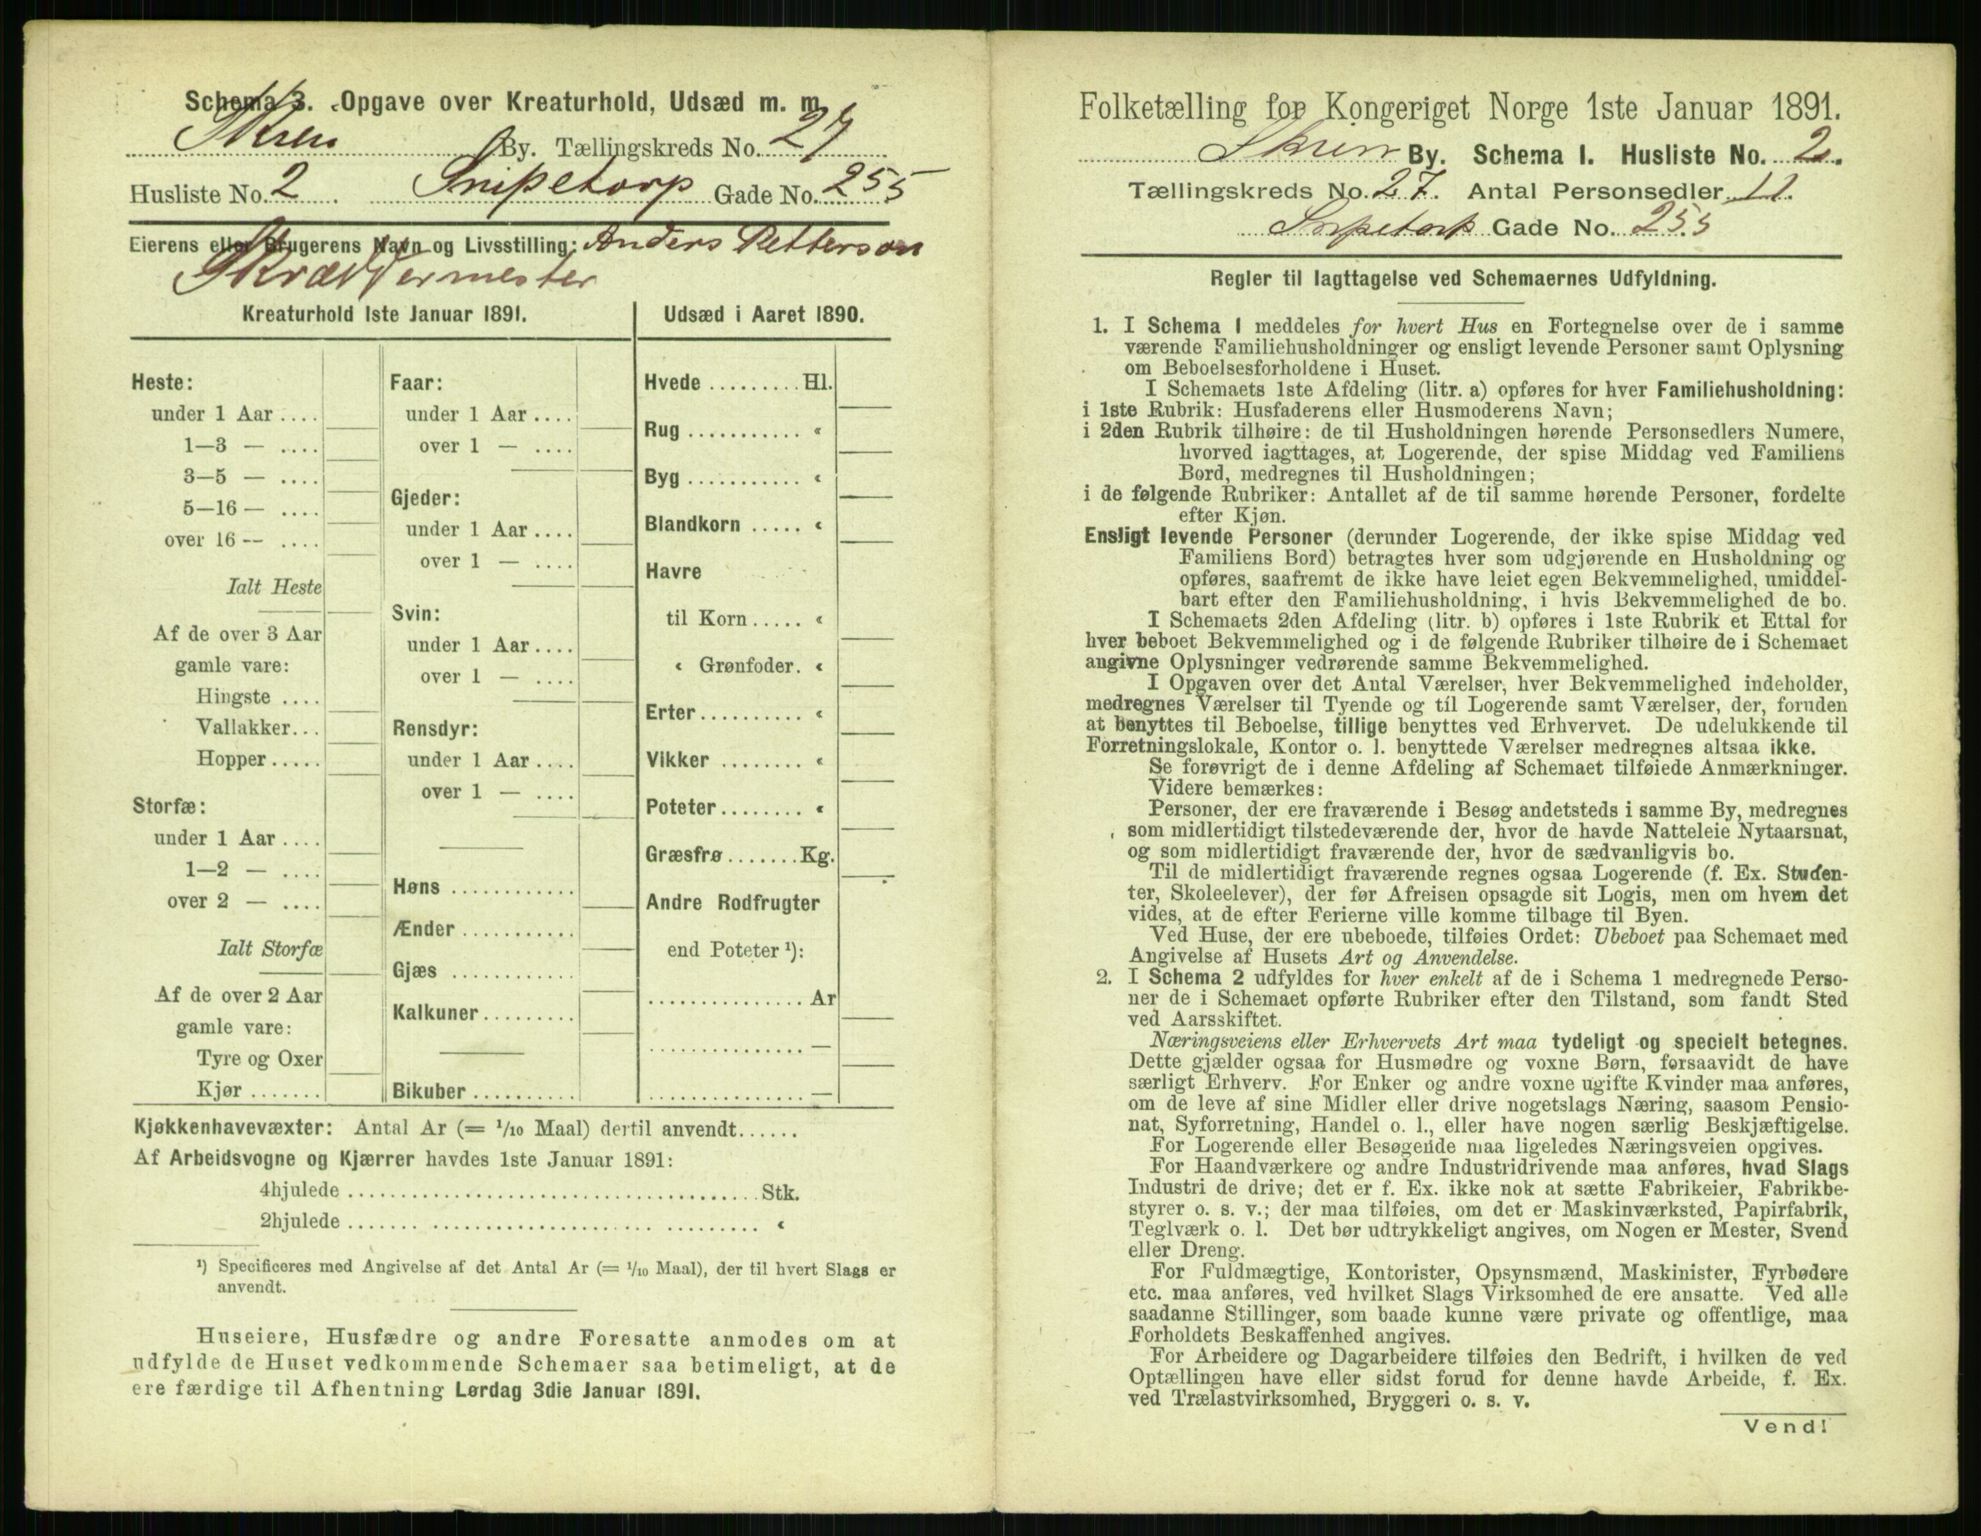 Schema 3. Opgave over Kreaturhold, Udsæd m. m.
Skien By. Tællingskreds No. 27
Husliste No. 2 Snipetorp Gade No. 255
Eierens eller Brugerens Navn og Livsstilling: Anders Petterson
Skræddermester
Kreaturhold 1ste Januar 1891.
Heste:
under 1 Aar ....
1—3 — ....
3—5 — ....
5—16 — ....
over 16 — ....
Ialt Heste
Af de over 3 Aar
gamle vare:
Hingste ....
Vallakker...
Hopper.....
Storfæ:
under 1 Aar ....
1—2 — ....
over 2 — ....
Ialt Storfæ
Af de over 2 Aar
gamle vare:
Tyre og Oxer
Kjør .......
Faar:
under 1 Aar ....
over 1 — ....
Gjeder:
under 1 Aar ....
over 1 — ....
Svin:
under 1 Aar ....
over 1 — ....
Rensdyr:
under 1 Aar ....
over 1 — ....
Høns ............
Ænder ...........
Gjæs ............
Kalkuner.........
Bikuber ..........
Udsæd i Aaret 1890.
Hvede ......... Hl.
Rug ........... «
Byg ........... «
Blandkorn ..... «
Havre
til Korn ..... «
« Grønfoder. «
Erter.......... «
Vikker ........ «
Poteter........ «
Græsfrø ....... Kg.
Andre Rodfrugter
end Poteter ¹):
............... Ar
............... —
............... —
Kjøkkenhavevæxter: Antal Ar (= 1/10 Maal) dertil anvendt......
Af Arbeidsvogne og Kjærrer havdes 1ste Januar 1891:
4hjulede ........................................ Stk.
2hjulede ........................................ «
¹) Specificeres med Angivelse af det Antal Ar (= 1/10 Maal), der til hvert Slags er
anvendt.
Huseiere, Husfædre og andre Foresatte anmodes om at
udfylde de Huset vedkommende Schemaer saa betimeligt, at de
ere færdige til Afhentning Lørdag 3die Januar 1891.
Folketælling for Kongeriget Norge 1ste Januar 1891.
Skien By. Schema 1. Husliste No. 2.
Tællingskreds No. 27. Antal Personsedler 11.
Snipetorp Gade No. 255
Regler til Iagttagelse ved Schemaernes Udfyldning.
1. I Schema 1 meddeles for hvert Hus en Fortegnelse over de i samme
værende Familiehusholdninger og ensligt levende Personer samt Oplysning
om Beboelsesforholdene i Huset.
I Schemaets 1ste Afdeling (litr. a) opføres for hver Familiehusholdning:
i 1ste Rubrik: Husfaderens eller Husmoderens Navn;
i 2den Rubrik tilhøire: de til Husholdningen hørende Personsedlers Numere,
hvorved iagttages, at Logerende, der spise Middag ved Familiens
Bord, medregnes til Husholdningen;
i de følgende Rubriker: Antallet af de til samme hørende Personer, fordelte
efter Kjøn.
Ensligt levende Personer (derunder Logerende, der ikke spise Middag ved
Familiens Bord) betragtes hver som udgjørende en Husholdning og
opføres, saafremt de ikke have leiet egen Bekvemmelighed, umiddel-
bart efter den Familiehusholdning, i hvis Bekvemmelighed de bo.
I Schemaets 2den Afdeling (litr. b) opføres i 1ste Rubrik et Ettal for
hver beboet Bekvemmelighed og i de følgende Rubriker tilhøire de i Schemaet
angivne Oplysninger vedrørende samme Bekvemmelighed.
I Opgaven over det Antal Værelser, hver Bekvemmelighed indeholder,
medregnes Værelser til Tyende og til Logerende samt Værelser, der, foruden
at benyttes til Beboelse, tillige benyttes ved Erhvervet. De udelukkende til
Forretningslokale, Kontor o. l. benyttede Værelser medregnes altsaa ikke.
Se forøvrigt de i denne Afdeling af Schemaet tilføiede Anmærkninger.
Videre bemærkes:
Personer, der ere fraværende i Besøg andetsteds i samme By, medregnes
som midlertidigt tilstedeværende der, hvor de havde Natteleie Nytaarsnat,
og som midlertidigt fraværende der, hvor de sædvanligvis bo.
Til de midlertidigt fraværende regnes ogsaa Logerende (f. Ex. Studen-
ter, Skoleelever), der før Afreisen opsagde sit Logis, men om hvem det
vides, at de efter Ferierne ville komme tilbage til Byen.
Ved Huse, der ere ubeboede, tilføies Ordet: Ubeboet paa Schemaet med
Angivelse af Husets Art og Anvendelse.
2. I Schema 2 udfyldes for hver enkelt af de i Schema 1 medregnede Perso-
ner de i Schemaet opførte Rubriker efter den Tilstand, som fandt Sted
ved Aarsskiftet.
Næringsveiens eller Erhvervets Art maa tydeligt og specielt betegnes.
Dette gjælder ogsaa for Husmødre og voxne Børn, forsaavidt de have
særligt Erhverv. For Enker og andre voxne ugifte Kvinder maa anføres,
om de leve af sine Midler eller drive nogetslags Næring, saasom Pensio-
nat, Syforretning, Handel o. l., eller have nogen særlig Beskjæftigelse.
For Logerende eller Besøgende maa ligeledes Næringsveien opgives.
For Haandværkere og andre Industridrivende maa anføres, hvad Slags
Industri de drive; det er f. Ex. ikke nok at sætte Fabrikeier, Fabrikbe-
styrer o. s. v.; der maa tilføies, om det er Maskinværksted, Papirfabrik,
Teglværk o. l. Det bør udtrykkeligt angives, om Nogen er Mester, Svend
eller Dreng.
For Fuldmægtige, Kontorister, Opsynsmænd, Maskinister, Fyrbødere
etc. maa anføres, ved hvilket Slags Virksomhed de ere ansatte. Ved alle
saadanne Stillinger, som baade kunne være private og offentlige, maa
Forholdets Beskaffenhed angives.
For Arbeidere og Dagarbeidere tilføies den Bedrift, i hvilken de ved
Optællingen have eller sidst forud for denne havde Arbeide, f. Ex.
ved Trælastvirksomhed, Bryggeri o. s. v.
Vend!